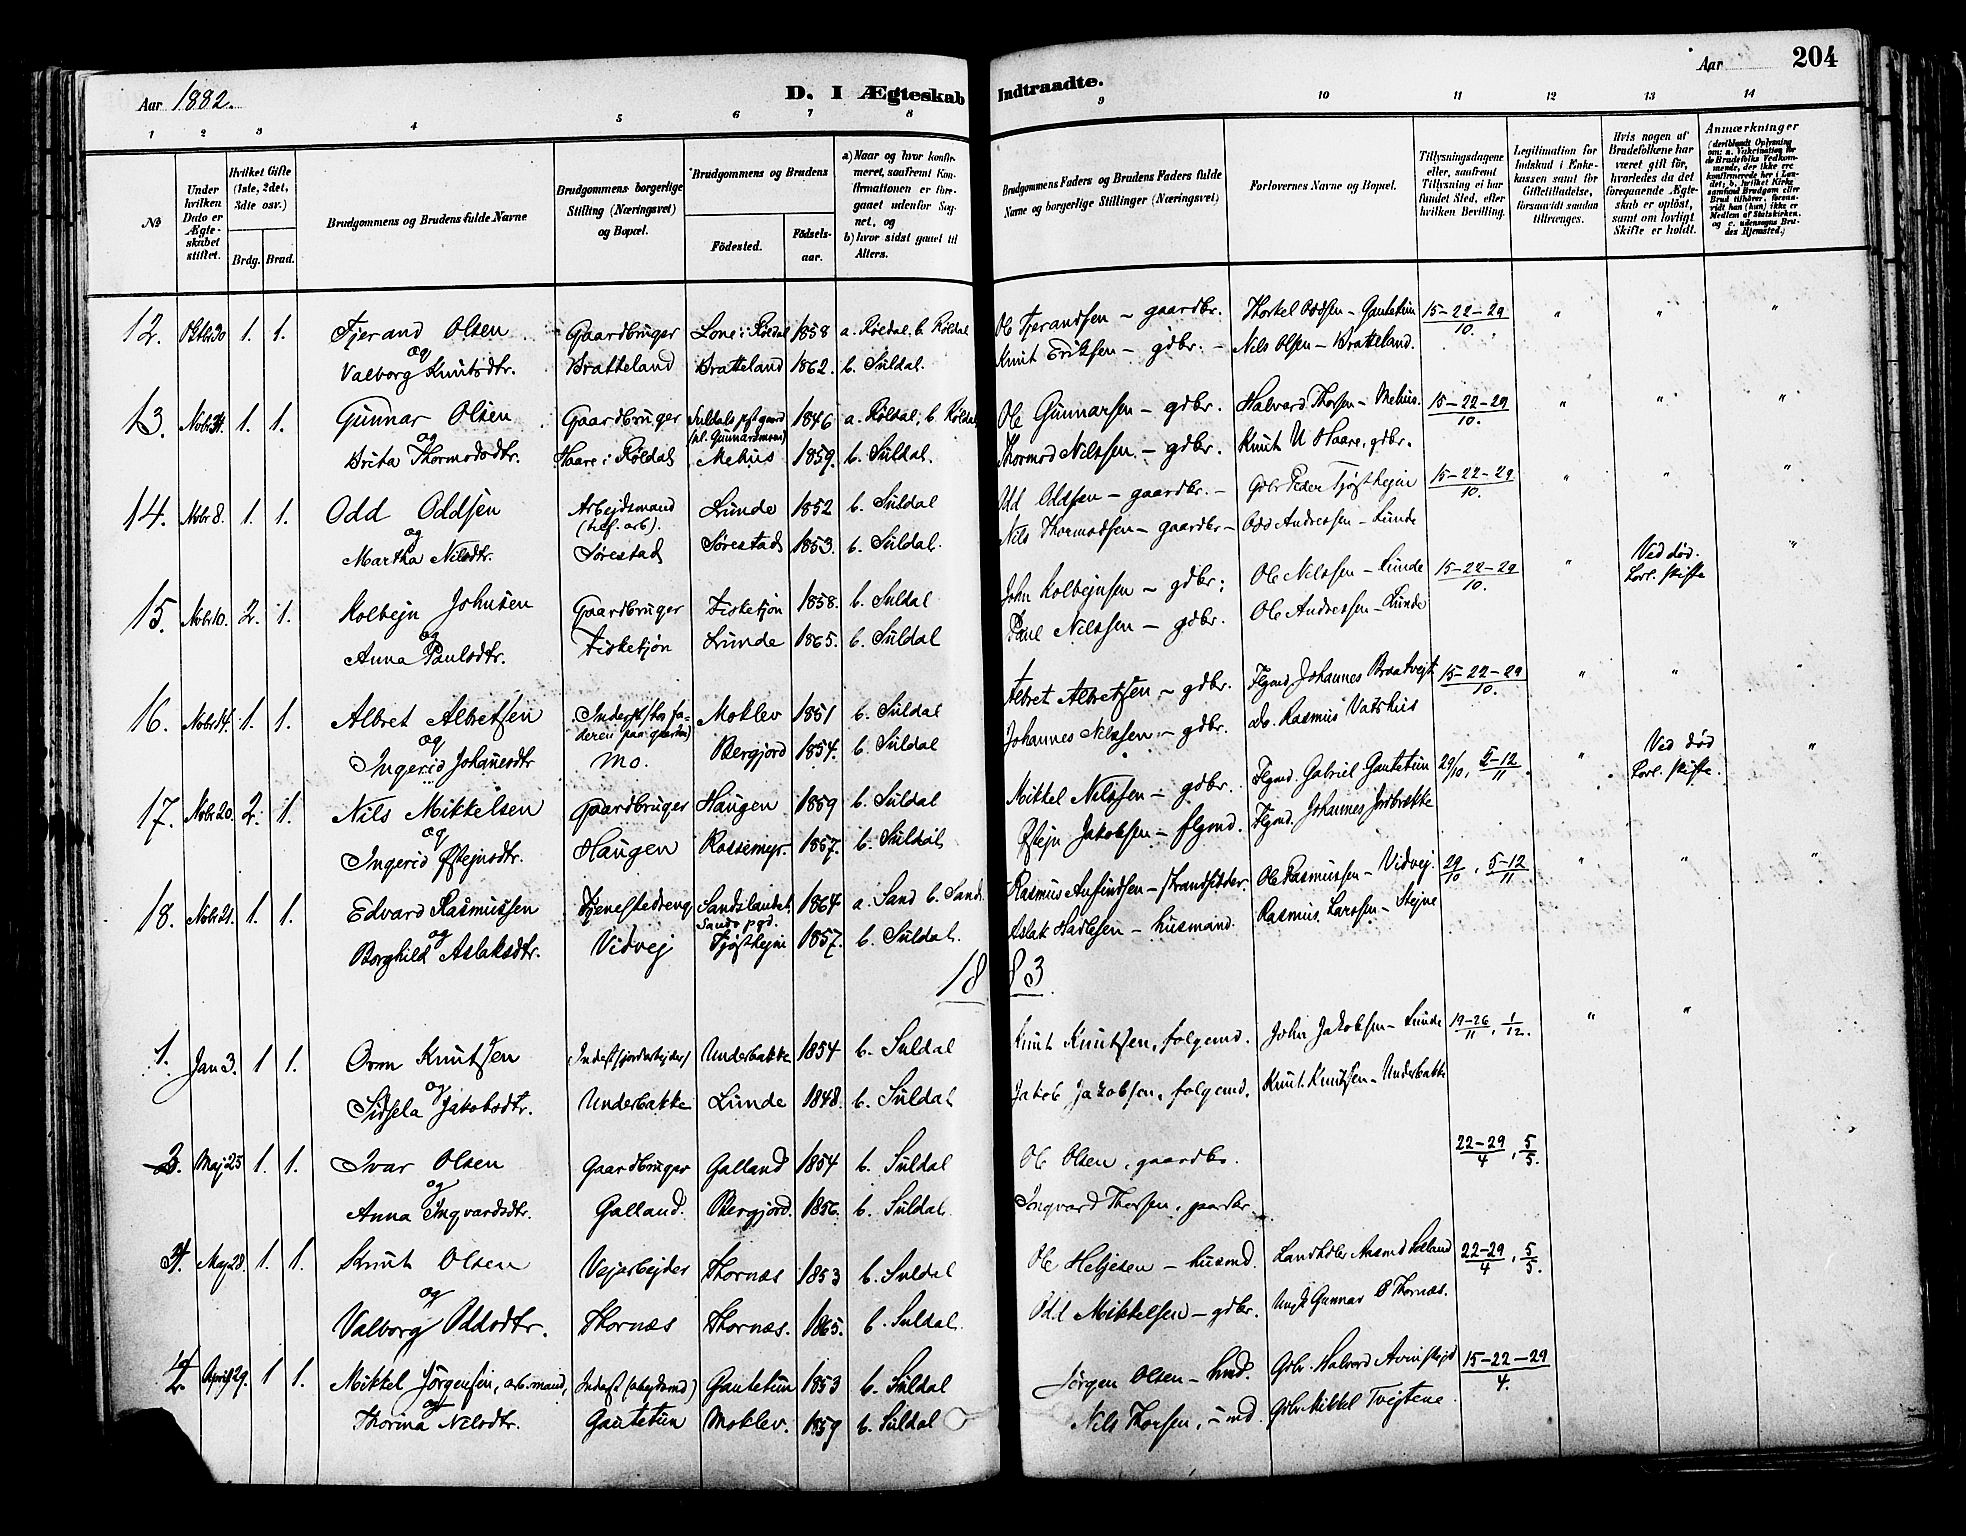 Aar 1882.
D. I Ægteskab Indtraadte.
Aar
204
1 2 3 4 5 6 7 8 9 10 11 12 13 14
№
Under hvilken Dato er Ægteskabet stiftet.
Hvilket Gifte (1ste, 2det, 3die osv.)
Brdg. Brud.
Brudgommens og Brudens fulde Navne
Brudgommens borgerlige Stilling (Næringsvei) og Bopæl.
Brudgommens og Brudens
Födested. Födsels-aar.
a) Naar og hvor konfirmeret, saafremt Konfirmationen er foregaaet udenfor Sognet, og
b) hvor sidst gaaet til Alters.
Brudgommens Faders og Brudens Faders fulde Navne og borgerlige Stillinger (Næringsvei)
Forlovernes Navne og Bopæl.
Tillysningsdagene eller, saafremt Tillysning ei har fundet Sted, efter hvilken Bevilling.
Legitimation for Indskud i Enkekassen samt for Giftetilladelse, forsaavidt saadan tiltrænges.
Hvis nogen af Brudefolkene har været gift för, hvorledes da det foregaaende Ægteskab er oplöst, samt om lovligt Skifte er holdt.
Anmærkninger
12. Oktbr 30 1. 1. Tjerand Olsen Gaardbruger Lone i Röldal 1858 a. Röldal. b. Röldal Ole Tjerandsen – gaardbr. Thorkel Oddsen – Gautetun 15–22–29/10.
og
Valborg Knutsdtr. Bratteland Bratteland 1862. b. Suldal. Knut Eriksen – gdbr. – Nils Olsen – Bratteland.
13. Nobr 1. 1. Gunnar Olsen Gaardbruger Suldals pstgaard 1846 a. Röldal, b. Röldal Ole Gunnarsen – gdbr. Halvard Thorsen – Mehus. 15–22–29/10.
og
Brita Thormodsdtr. Haare i Röldal Mehus 1859. b. Suldal. Thormod Nilssen – gdbr. Knut N Haare, gdbr.
14. Nobr 8. 1. 1. Odd Oddsen Arbejdsmand Lunde 1852 b. Suldal Odd Oddsen – gaardbr. – Gdbr Peder Tjösthejm 15–22–29/10.
og
Martha Nilsdtr. Sørestad Sørestad 1853. b. Suldal. Nils Thormodsen – gaardbr – Odd Andreasen – Lunde
15. Nobr 10. 2. 1. Kolbejn Johnsen Gaardbruger Fisketjön 1858. b. Suldal John Kolbejnsen – gdbr; Ole Nilssen – Lunde 15–22–29/10. Ved död. Lovl. skifte
og
Anna Paulsdtr. Fisketjön Lunde 1865. b. Suldal Paul Nilssen – gdbr. Ole Andreasen – Lunde
16. Nobr 14. 1. 1. Albret Albretsen Inderst Moklev 1851 b. Suldal Albret Albretsen – gdbr. Flgmd Johannes Braatvejt 15–22–29/10.
og
Ingerid Johannesdtr Mo. Bergjord 1854. b. Suldal Johannes Nilssen – gdbr. do. Rasmus Vatshus
17. Nobr 20. 2. 1. Nils Mikkelsen Gaardbruger Haugen 1859 b. Suldal Mikkel Nilssen – gdbr. Flgmd. Gabriel Gautetun 29/10, 5–12/11 Ved död Lovl. skifte.
og
Ingerid Östejnsdtr. Haugen Rossemyr. 1857. b. Suldal. Östejn Jakobsen – flgmd. Flgmd. Johannes Jordbrække
18. Nobr 21. 1. 1. Edvard Rasmussen Tjenestedreng Sandslandet, Sands pgd. 1864 a. Sand b. Sand. Rasmus Anfindsen – strandsidder. Ole Rasmussen – Vidvej. 29/10, 5–12/11
og
Borghild Aslaksdtr. Vidvej Tjöstheim 1857. b. Suldal. Aslak Hadlesen – husmand. Rasmus Larssen – Stejne
1883
1. Jan 3. 1 1. Orm Knutsen Underbakke 1854 b. Suldal Knut Knutsen, folgemd. John Jakobsen – Lunde 19–26/11, 1/12.
og
Sidsela Jakobsdtr. Underbakke Lunde 1848. b. Suldal Jakob Jakobsen, folgemd. Knut Knutsen – Underbakke
3. Maj 25 1. 1. Ivar Olsen Gaardbruger Galland 1854 b. Suldal Ole Olsen, gaardbr. 22–29/4, 5/5.
og
Anna Ingvardsdtr. Galland. Bergjord. 1856. b. Suldal. Ingvard Thorsen, gaardbr.
4. Maj 28. 1. 1. Knut Olsen Vejarbejder Thornæs 1853 b. Suldal Ole Heljesen – husmd. Landhdlr Aasmd Soeland 22–29/4, 5/5.
og
Valborg Oddsdtr. Thornæs Thornæs. 1865. b. Suldal. Odd Mikkelsen – gdbr. Ungk Gunnar O Thornæs.
2. April 29. 1 1. Mikkel Jörgensen, arb.mand, Inderst Gautetun 1853 b. Suldal Jörgen Olsen – hmd. Gdbr. Halvord 15–22–29/4.
og
Thorina Nilsdtr. Gautetun Moklev. 1859 b. Suldal Nils Thorsen, Gdbr Mikkel Tvejtene